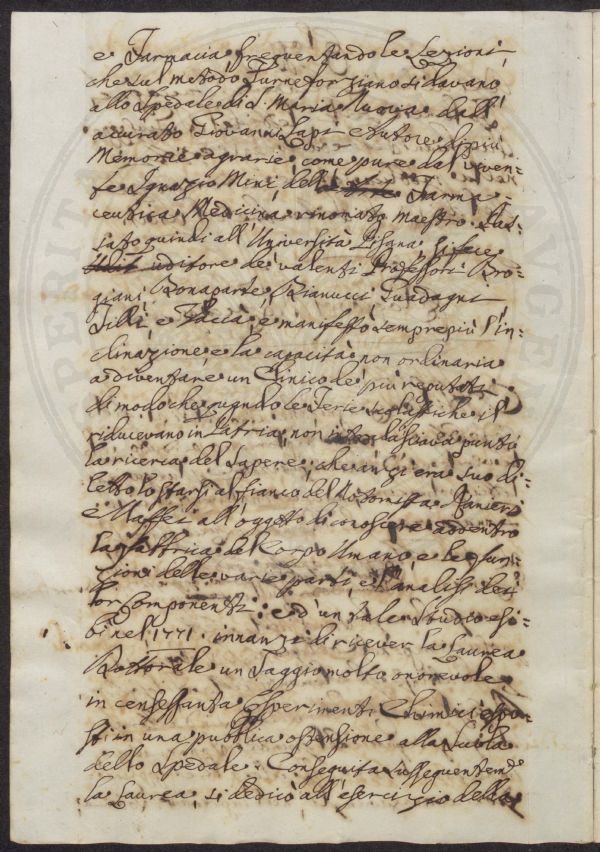 e Farmacia, frequentando le Lezioni,
che sul metodo Turneforziano si davano
allo Spedale di S. Maria Nuova dall'
accurato Giovanni Lapi Autore di più
Memorie agrarie, come pure dal viven=
te Ignazio Mini, dell' Farma
ceutica Medicina rinomato Maestro. Pas=
sato quindi all' Università Pisana si fece
uditore de' valenti Professori Bro=
giani, Bonaparte, Vianucci Guadagni
Tilli, e Vaccà, e manifestò sempre più l'in=
clinazione, e la capacità non ordinaria
a diventare un Clinico de' più reputati
di modo che quando le Ferie il
riducevano in Patria, non lasciava punto
la ricerca del Sapere, che anzi era suo di=
letto lo starsi al fianco del Notomista Ranieri
Maffei all' oggetto di conoscere addentro
la fabbrica del Corpo Umano, e le fun=
zioni delle varie parti, e l'analisi dei
lor componenti: e d'un tale Studio esi=
bì nel 1771. innanzi di ricever la Laurea
Dottorale un Saggio molto onorevole
in censessanta Esperimenti Chimici espo=
sti in una pubblica ostensione alla Scuola
dello Spedale. Conseguita susseguentem.e
la Laurea, si dedicò all' esercizio della